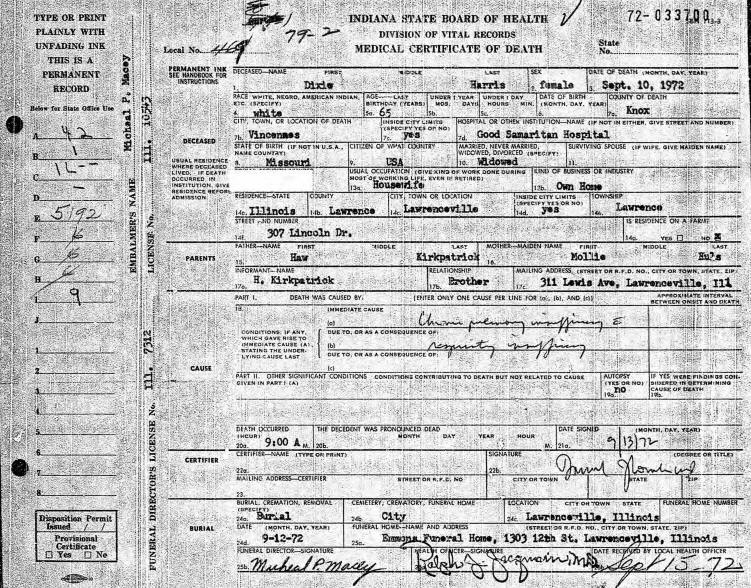 TYPE OR PRINT
PLAINLY WITH
UNFADING INK
THIS IS A
PERMANENT
RECORD
Below for State Office Use
A 42
B 1
C 1L--
D -
E 5192
F 6
G 6
H 6
I 9
J
1
2
3
4
5
6
7
8
Disposition Permit
Issued /
Provisional
Certificate
☐ Yes ☐ No
EMBALMER'S NAME Micheal P. Macey
LICENSE No. Ill. 10545
FUNERAL DIRECTOR'S LICENSE No. Ill. 7312
79-2
INDIANA STATE BOARD OF HEALTH
DIVISION OF VITAL RECORDS
MEDICAL CERTIFICATE OF DEATH
72-033700
Local No. 469
State
No.
PERMANENT INK
SEE HANDBOOK FOR
INSTRUCTIONS
DECEASED—NAME FIRST MIDDLE LAST SEX DATE OF DEATH (MONTH, DAY, YEAR)
1. Dixie Harris 2. female 3. Sept. 10, 1972
RACE WHITE, NEGRO, AMERICAN INDIAN, ETC. (SPECIFY) AGE—LAST BIRTHDAY (YEARS) UNDER 1 YEAR MOS. DAYS UNDER 1 DAY HOURS MIN. DATE OF BIRTH (MONTH, DAY, YEAR) COUNTY OF DEATH
4. white 5a. 65 5b. 5c. 6. 7a. Knox
CITY, TOWN, OR LOCATION OF DEATH INSIDE CITY LIMITS (SPECIFY YES OR NO) HOSPITAL OR OTHER INSTITUTION—NAME (IF NOT IN EITHER, GIVE STREET AND NUMBER)
7b. Vincennes 7c. yes 7d. Good Samaritan Hospital
DECEASED
USUAL RESIDENCE
WHERE DECEASED
LIVED. IF DEATH
OCCURRED IN
INSTITUTION, GIVE
RESIDENCE BEFORE
ADMISSION
STATE OF BIRTH (IF NOT IN U.S.A., NAME COUNTRY) CITIZEN OF WHAT COUNTRY MARRIED, NEVER MARRIED, WIDOWED, DIVORCED (SPECIFY) SURVIVING SPOUSE (IF WIFE, GIVE MAIDEN NAME)
8. Missouri 9. USA 10. Widowed 11.
USUAL OCCUPATION (GIVE KIND OF WORK DONE DURING MOST OF WORKING LIFE, EVEN IF RETIRED) KIND OF BUSINESS OR INDUSTRY
13a. Housewife 13b. Own Home
RESIDENCE—STATE COUNTY CITY, TOWN OR LOCATION INSIDE CITY LIMITS (SPECIFY YES OR NO) TOWNSHIP
14a. Illinois 14b. Lawrence 14c. Lawrenceville 14d. yes 14e. Lawrence
STREET AND NUMBER IS RESIDENCE ON A FARM?
14f. 307 Lincoln Dr. 14g. YES ☐ NO X
PARENTS
FATHER—NAME FIRST MIDDLE LAST MOTHER—MAIDEN NAME FIRST MIDDLE LAST
15. Haw Kirkpatrick 16. Mollie
INFORMANT—NAME RELATIONSHIP MAILING ADDRESS (STREET OR R.F.D. NO., CITY OR TOWN, STATE, ZIP)
17a. H. Kirkpatrick 17b. Brother 17c. 311 Lewis Ave, Lawrenceville, Ill
PART I. DEATH WAS CAUSED BY: (ENTER ONLY ONE CAUSE PER LINE FOR (a), (b), AND (c)) APPROXIMATE INTERVAL BETWEEN ONSET AND DEATH
18. IMMEDIATE CAUSE
(a) Chronic pulmonary insufficiency
CONDITIONS, IF ANY,
WHICH GAVE RISE TO
IMMEDIATE CAUSE (A),
STATING THE UNDER-
LYING CAUSE LAST
DUE TO, OR AS A CONSEQUENCE OF:
(b) respiratory insufficiency
DUE TO, OR AS A CONSEQUENCE OF:
(c)
CAUSE
PART II. OTHER SIGNIFICANT CONDITIONS CONDITIONS CONTRIBUTING TO DEATH BUT NOT RELATED TO CAUSE GIVEN IN PART I (A)
AUTOPSY (YES OR NO) 19a. no
IF YES WERE FINDINGS CONSIDERED IN DETERMINING CAUSE OF DEATH 19b.
DEATH OCCURRED (HOUR) THE DECEDENT WAS PRONOUNCED DEAD MONTH DAY YEAR HOUR DATE SIGNED (MONTH, DAY, YEAR)
20a. 9:00 A M. 20b. M. 21a. 9/13/72
CERTIFIER
CERTIFIER—NAME (TYPE OR PRINT) SIGNATURE (DEGREE OR TITLE)
22a. 22b.
MAILING ADDRESS—CERTIFIER STREET OR R.F.D. NO. CITY OR TOWN STATE ZIP
23.
BURIAL
BURIAL, CREMATION, REMOVAL (SPECIFY) CEMETERY, CREMATORY, FUNERAL HOME LOCATION CITY OR TOWN STATE FUNERAL HOME NUMBER
24a. Burial 24b. City 24c. Lawrenceville, Illinois
DATE (MONTH, DAY, YEAR) FUNERAL HOME—NAME AND ADDRESS (STREET OR R.F.D. NO., CITY OR TOWN, STATE, ZIP)
24d. 9-12-72 25a. Emmons Funeral Home, 1303 12th St. Lawrenceville, Illinois
FUNERAL DIRECTOR—SIGNATURE HEALTH OFFICER—SIGNATURE DATE RECEIVED BY LOCAL HEALTH OFFICER
25b. Micheal P. Macey Ralph J. Jacqmain, M.D. Sept 15-72